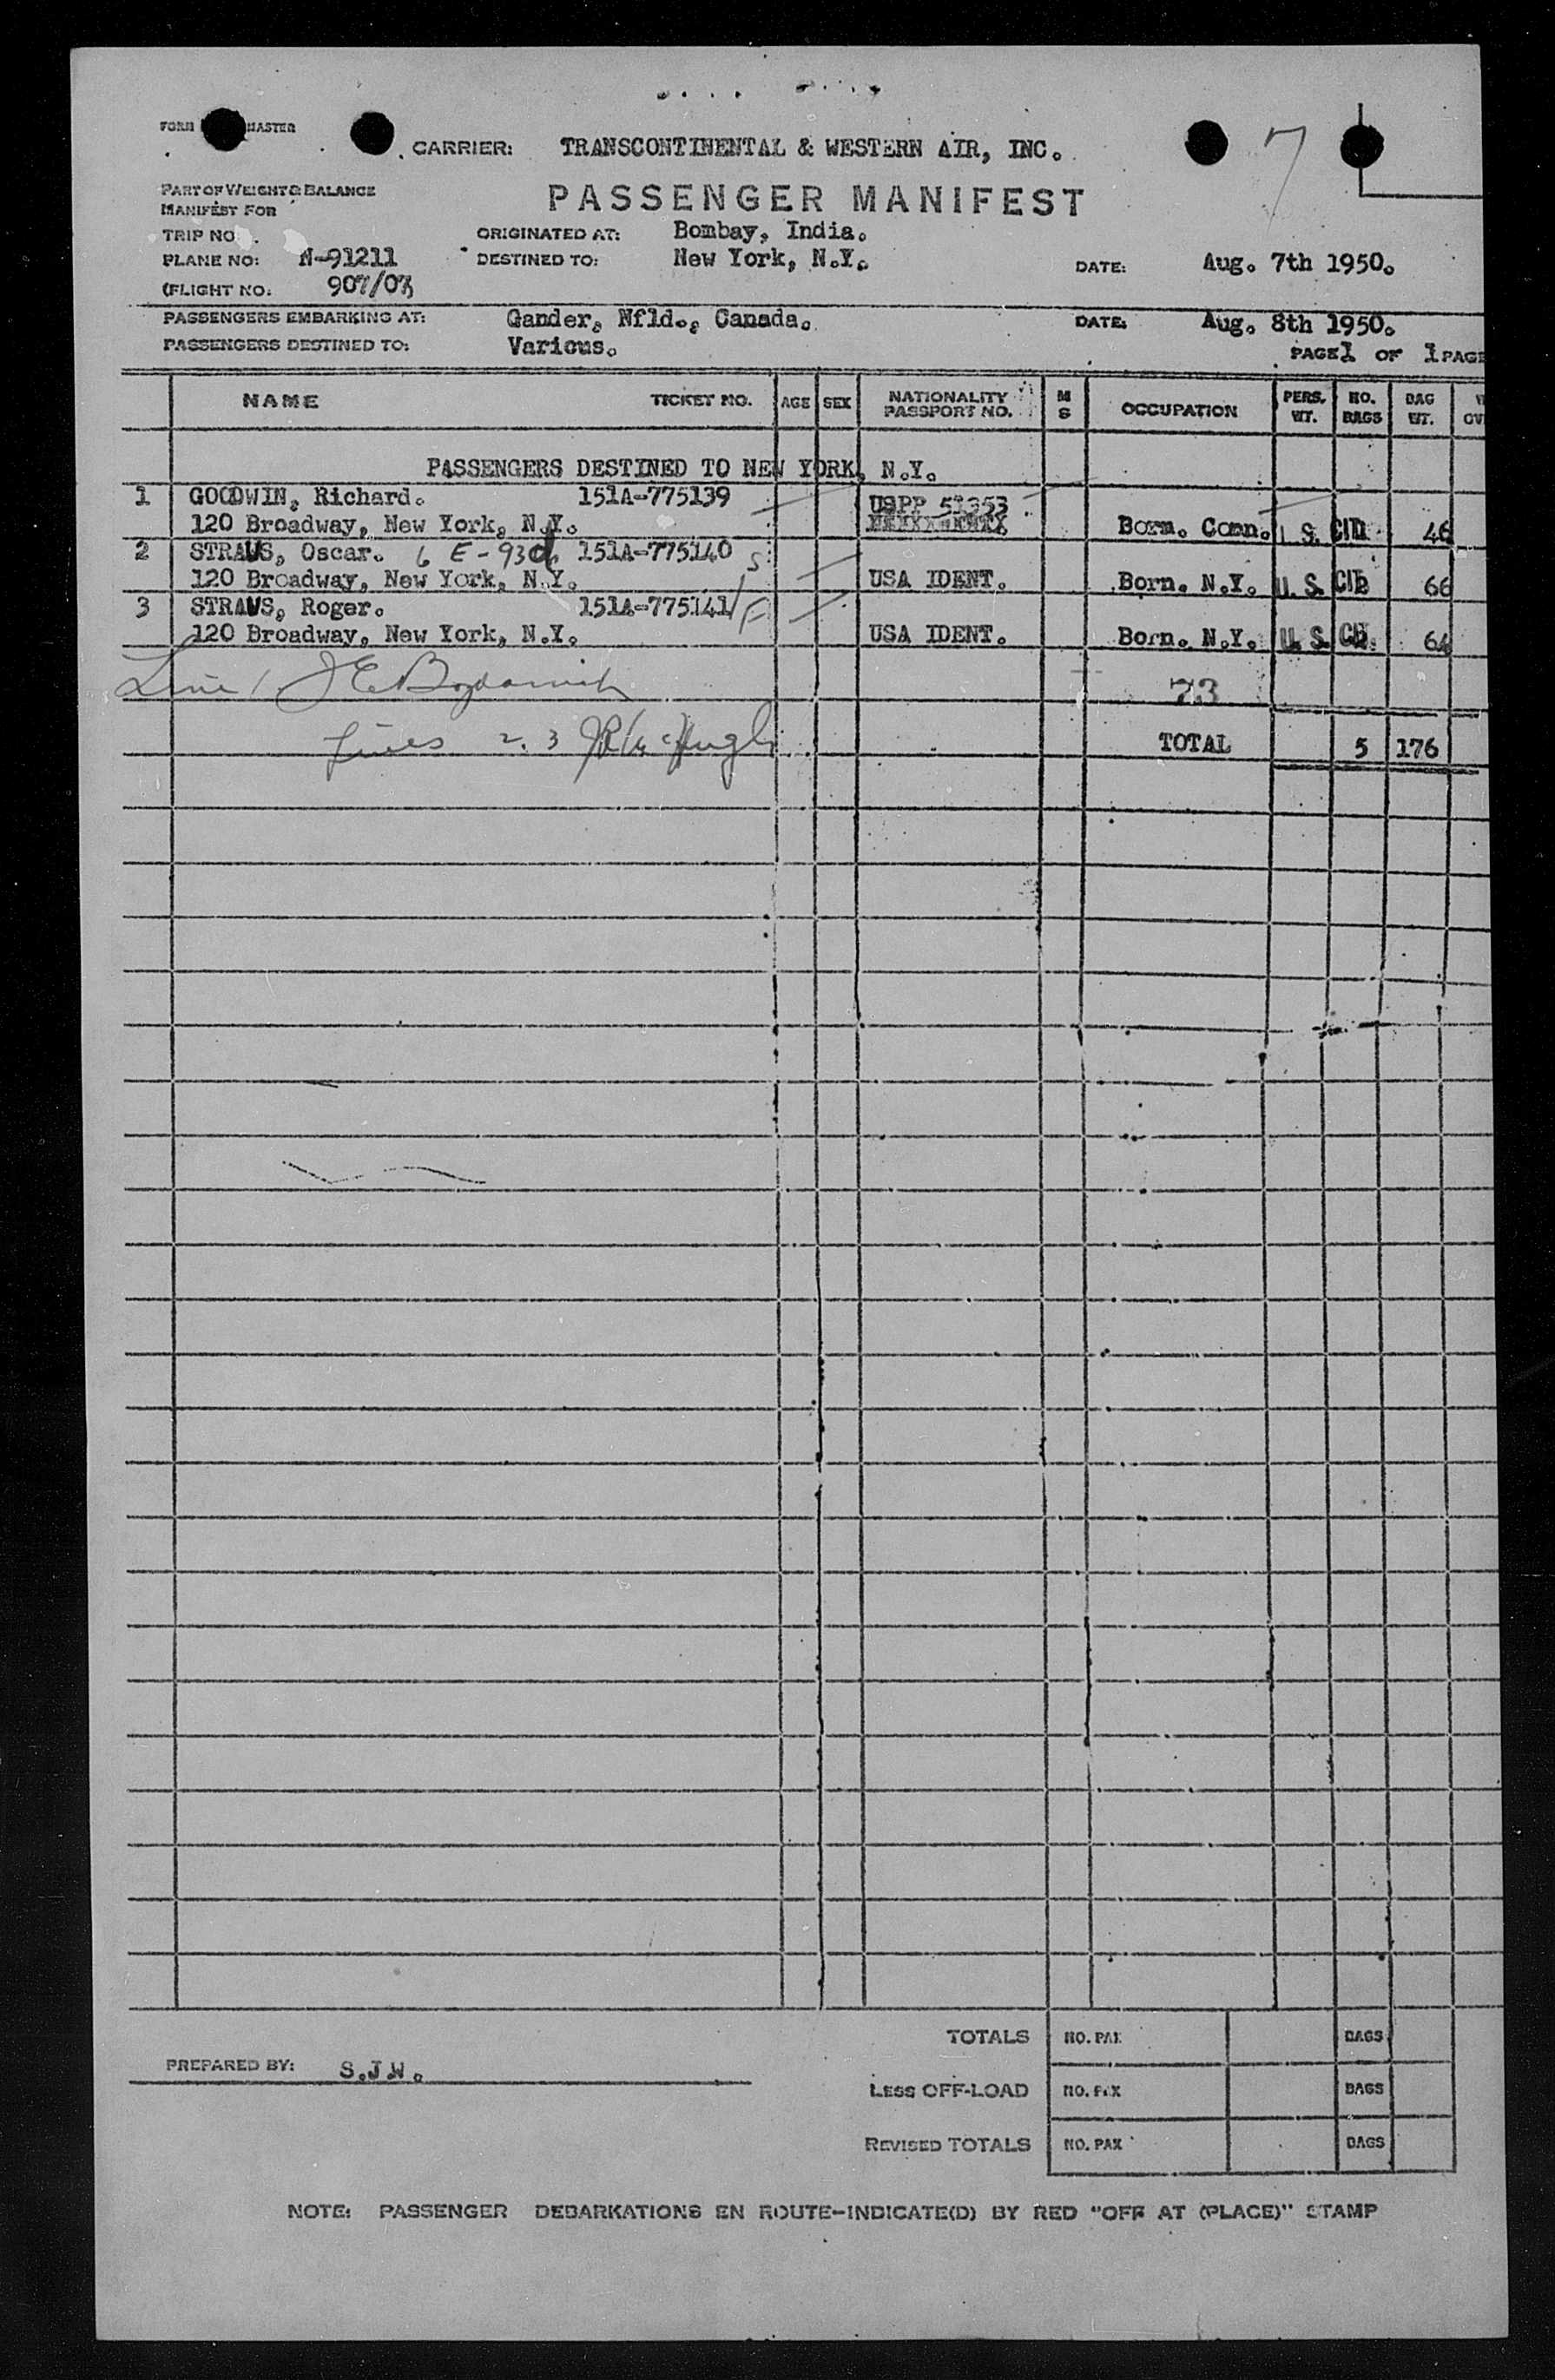 FORM MASTER
CARRIER: TRANSCONTINENTAL & WESTERN AIR, INC.
7
PART OF WEIGHT & BALANCE
MANIFEST FOR
PASSENGER MANIFEST
TRIP NO.
ORIGINATED AT: Bombay, India.
PLANE NO: N-91211
DESTINED TO: New York, N.Y.
DATE: Aug. 7th 1950.
(FLIGHT NO: 907/07
PASSENGERS EMBARKING AT: Gander, Nfld., Canada.
DATE: Aug. 8th 1950.
PASSENGERS DESTINED TO: Various.
PAGE 1 OF 1 PAGE
NAME TICKET NO. AGE SEX NATIONALITY PASSPORT NO. M S OCCUPATION PERS. WT. NO. BAGS BAG WT.
PASSENGERS DESTINED TO NEW YORK, N.Y.
1 GOODWIN, Richard. 151A-775139 USPP 51353
120 Broadway, New York, N.Y. Born. Conn. U. S. CIT. 46
2 STRAUS, Oscar. 6 E-93d 151A-775140 S
120 Broadway, New York, N.Y. USA IDENT. Born. N.Y. U. S. CIT. 66
3 STRAUS, Roger. 151A-775141 F
120 Broadway, New York, N.Y. USA IDENT. Born. N.Y. U. S. CIT. 64
Line 1 73
Lines 2. 3 JR McHugh
TOTAL 5 176
TOTALS NO. PAX BAGS
PREPARED BY: S.J.W.
LESS OFF-LOAD NO. PAX BAGS
REVISED TOTALS NO. PAX BAGS
NOTE: PASSENGER DEBARKATIONS EN ROUTE-INDICATE(D) BY RED "OFF AT (PLACE)" STAMP